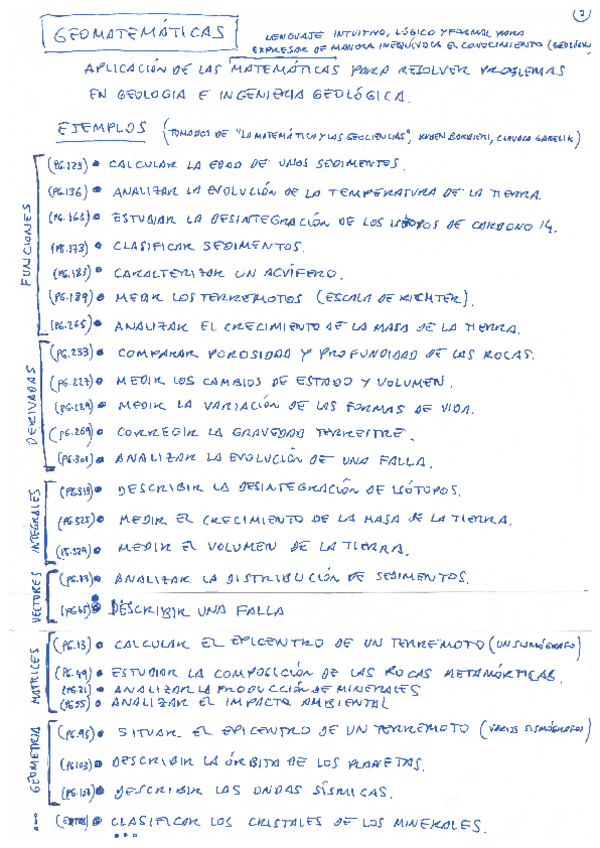 GEOMATEMÁTICAS
LENGUAJE INTUITIVO, LÓGICO Y FORMAL PARA
EXPRESAR DE MANERA INEQUÍVOCA EL CONOCIMIENTO
APLICACIÓN DE LAS MATEMÁTICAS PARA RESOLVER PROBLEMAS
EN GEOLOGIA E INGENIERIA GEOLÓGICA.
EJEMPLOS (TOMADOS DE "LA MATEMÁTICA Y LAS GEOCIENCIAS", RUBEN BARBIERI, CLAUDIA GARELIK)
FUNCIONES
(PG.129) • CALCULAR LA EDAD DE UNOS SEDIMENTOS.
(PG.136) • ANALIZAR LA EVOLUCIÓN DE LA TEMPERATURA DE LA TIERRA.
(PG.163) • ESTUDIAR LA DESINTEGRACIÓN DE LOS ISÓTOPOS DE CARBONO 14.
(PG.173) • CLASIFICAR SEDIMENTOS.
(PG.183) • CARACTERIZAR UN ACUÍFERO.
(PG.189) • MEDIR LOS TERREMOTOS (ESCALA DE RICHTER).
(PG.265) • ANALIZAR EL CRECIMIENTO DE LA MASA DE LA TIERRA.
DERIVADAS
(PG.233) • COMPARAR POROSIDAD Y PROFUNDIDAD DE LAS ROCAS.
(PG.227) • MEDIR LOS CAMBIOS DE ESTADO Y VOLUMEN.
(PG.229) • MEDIR LA VARIACIÓN DE LAS FORMAS DE VIDA.
(PG.269) • CORREGIR LA GRAVEDAD TERRESTRE.
(PG.301) • ANALIZAR LA EVOLUCIÓN DE UNA FALLA.
INTEGRALES
(PG.319) • DESCRIBIR LA DESINTEGRACIÓN DE ISÓTOPOS.
(PG.325) • MEDIR EL CRECIMIENTO DE LA MASA DE LA TIERRA.
(PG.329) • MEDIR EL VOLUMEN DE LA TIERRA.
VECTORES
(PG.33) • ANALIZAR LA DISTRIBUCIÓN DE SEDIMENTOS.
(PG.65) • DESCRIBIR UNA FALLA
MATRICES
(PG.13) • CALCULAR EL EPICENTRO DE UN TERREMOTO (UN SISMÓGRAFO)
(PG.49) • ESTUDIAR LA COMPOSICIÓN DE LAS ROCAS METAMÓRFICAS.
(PG.21) • ANALIZAR LA PRODUCCIÓN DE MINERALES
(PG.55) • ANALIZAR EL IMPACTO AMBIENTAL
GEOMETRIA
(PG.95) • SITUAR EL EPICENTRO DE UN TERREMOTO (VARIOS SISMÓGRAFOS)
(PG.103) • DESCRIBIR LA ÓRBITA DE LOS PLANETAS.
(PG.107) • DESCRIBIR LAS ONDAS SÍSMICAS.
... • CLASIFICAR LOS CRISTALES DE LOS MINERALES.
...